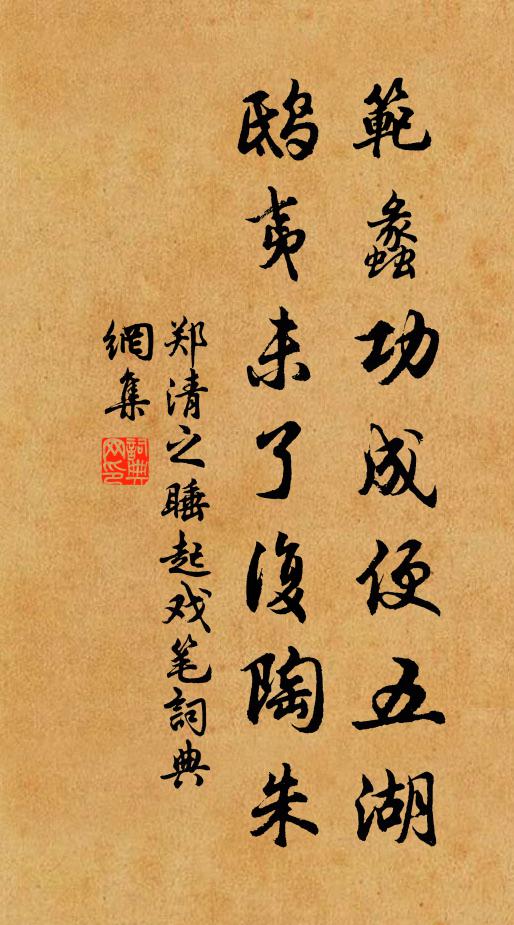 範蠡功成便五湖
鸱夷未了復陶朱
郑清之睡起戏笔詞典
網集
詞典网印